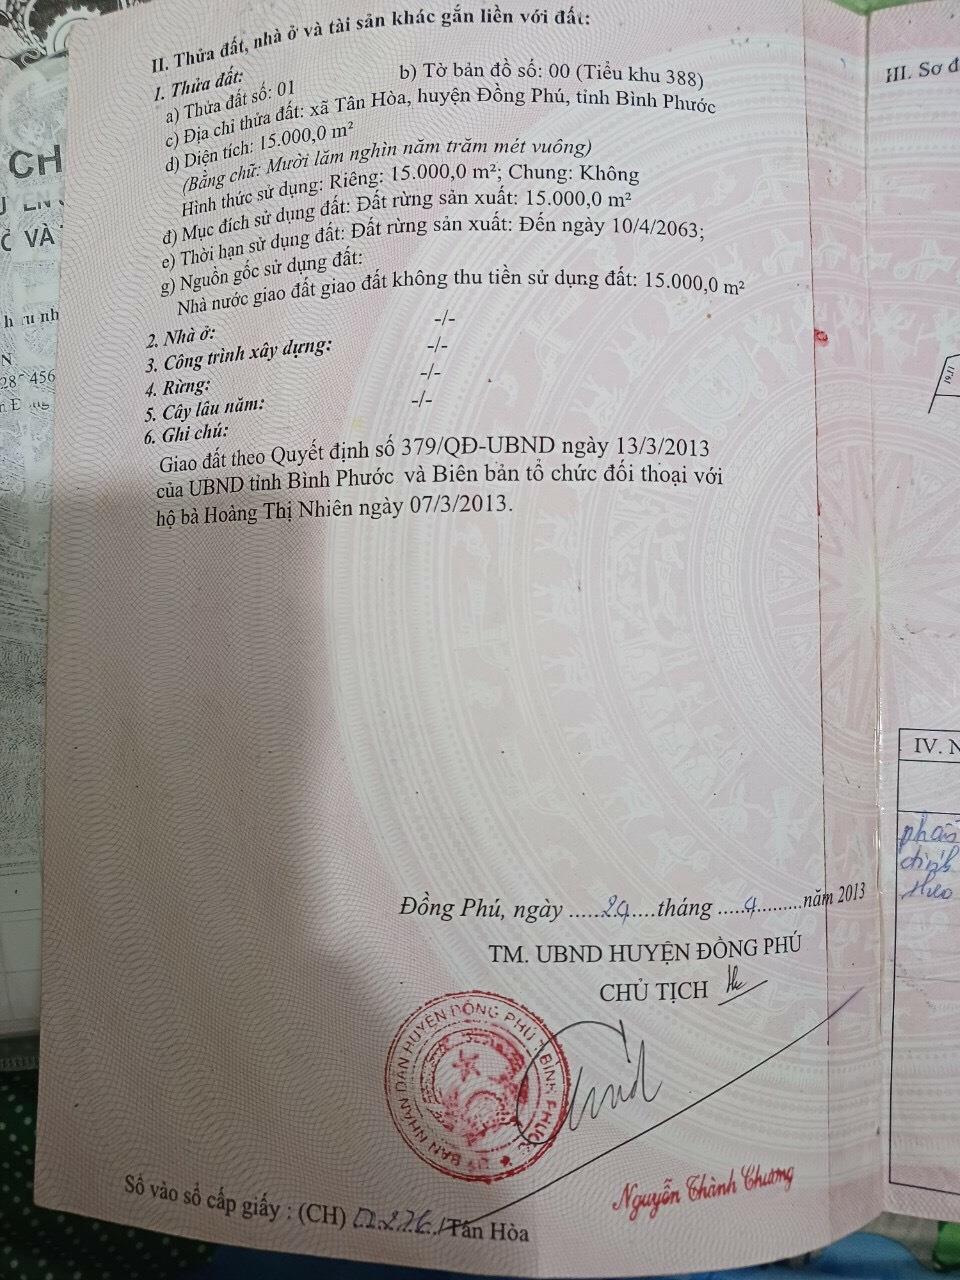 II. Thửa đất, nhà ở và tài sản khác gắn liền với đất:
1. Thửa đất:
a) Thửa đất số: 01 b) Tờ bản đồ số: 00 (Tiểu khu 388)
c) Địa chỉ thửa đất: xã Tân Hòa, huyện Đồng Phú, tỉnh Bình Phước
d) Diện tích: 15.000,0 m²
(Bằng chữ: Mười lăm nghìn năm trăm mét vuông)
Hình thức sử dụng: Riêng: 15.000,0 m²; Chung: Không
đ) Mục đích sử dụng đất: Đất rừng sản xuất: 15.000,0 m²
e) Thời hạn sử dụng đất: Đất rừng sản xuất: Đến ngày 10/4/2063;
g) Nguồn gốc sử dụng đất:
Nhà nước giao đất giao đất không thu tiền sử dụng đất: 15.000,0 m²
2. Nhà ở: -/-
3. Công trình xây dựng: -/-
4. Rừng: -/-
5. Cây lâu năm: -/-
6. Ghi chú:
Giao đất theo Quyết định số 379/QĐ-UBND ngày 13/3/2013
của UBND tỉnh Bình Phước và Biên bản tổ chức đối thoại với
hộ bà Hoàng Thị Nhiên ngày 07/3/2013.
Đồng Phú, ngày .....29....tháng .....4.........năm 2013
TM. UBND HUYỆN ĐỒNG PHÚ
CHỦ TỊCH
ỦY BAN NHÂN DÂN HUYỆN ĐỒNG PHÚ - BÌNH PHƯỚC
Nguyễn Thành Chương
Số vào sổ cấp giấy : (CH) /Tân Hòa
III. Sơ đ
1711
IV. N
phần
đính
theo
CH
VÀ
456